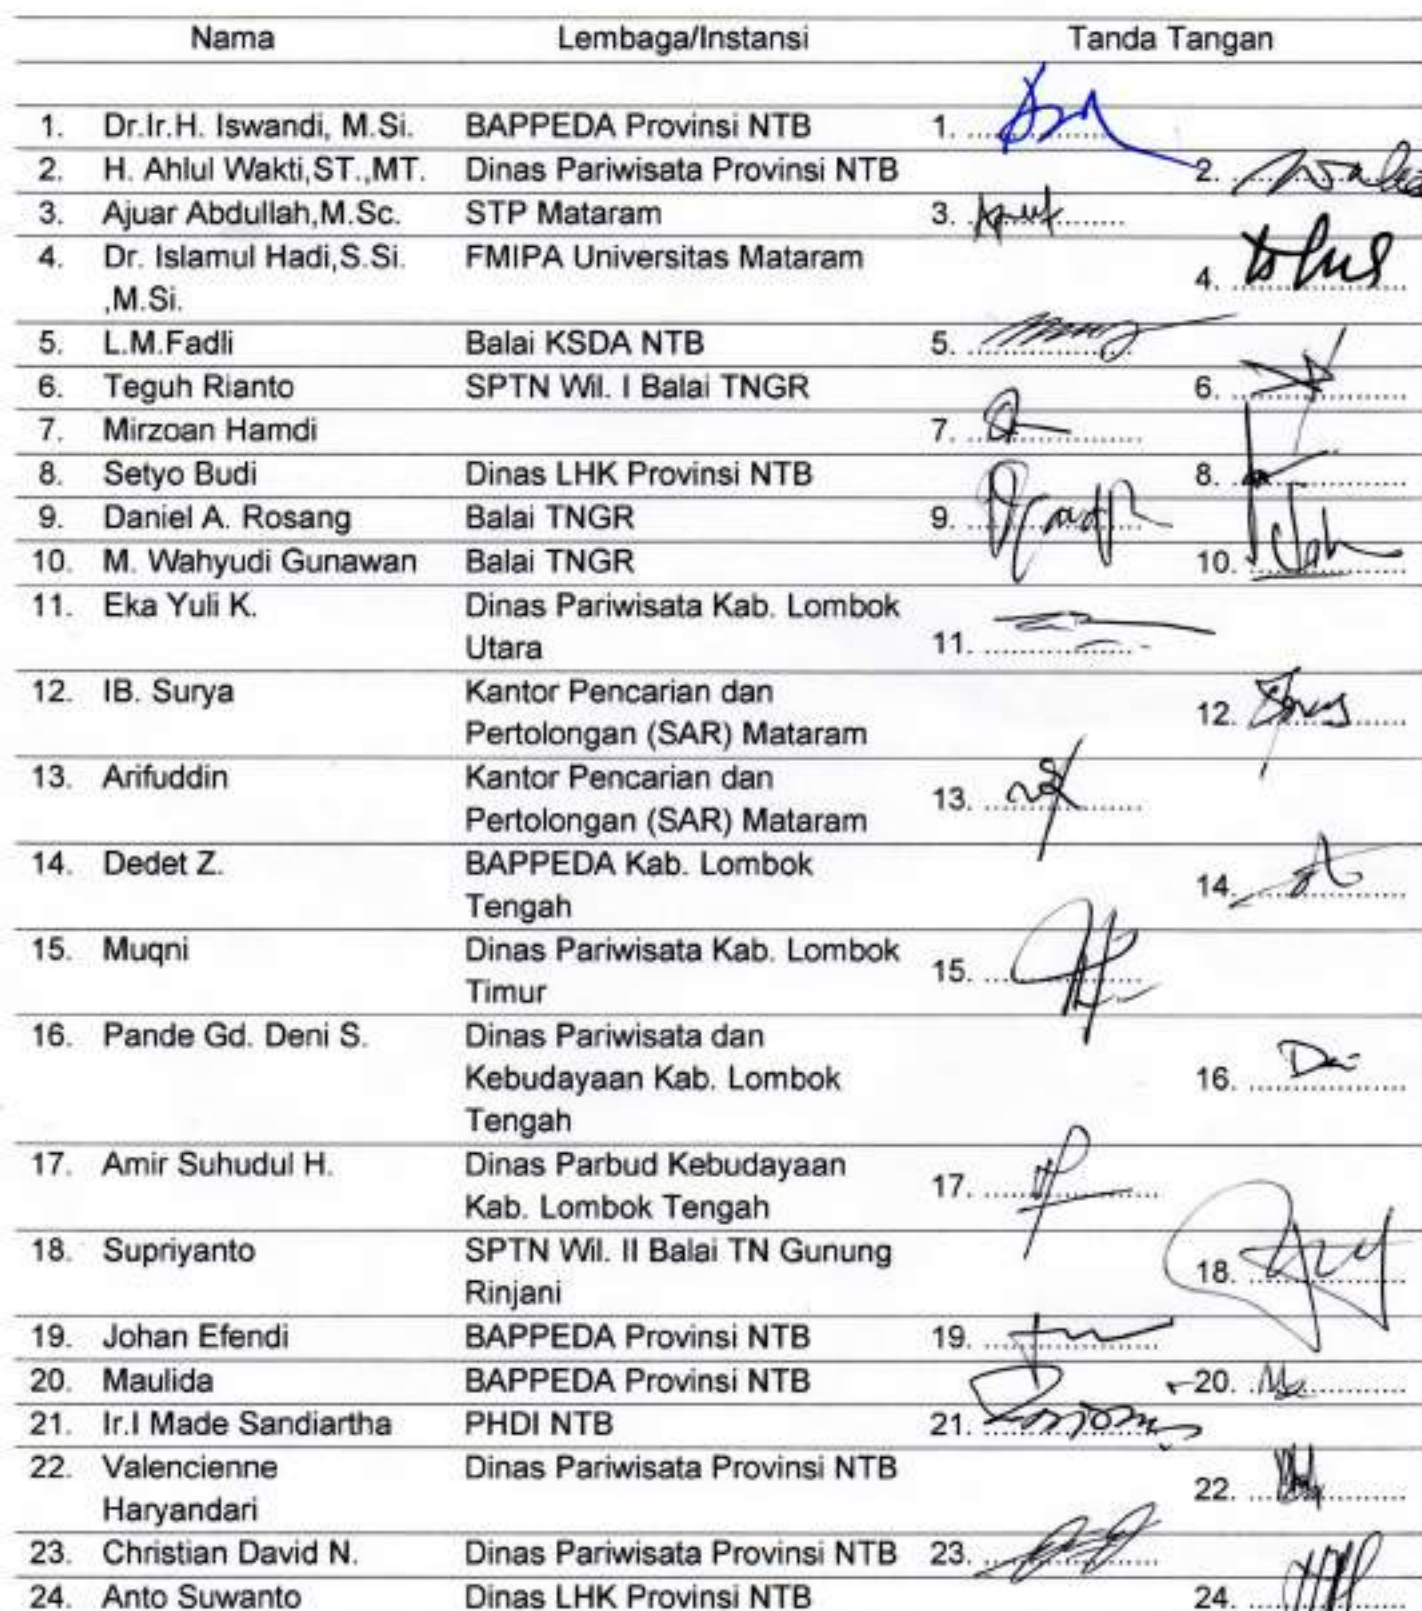 Nama Lembaga/Instansi Tanda Tangan
1. Dr.Ir.H. Iswandi, M.Si. BAPPEDA Provinsi NTB 1. ..........
2. H. Ahlul Wakti,ST.,MT. Dinas Pariwisata Provinsi NTB 2. ..........
3. Ajuar Abdullah,M.Sc. STP Mataram 3. ..........
4. Dr. Islamul Hadi,S.Si. FMIPA Universitas Mataram 4. ..........
,M.Si.
5. L.M.Fadli Balai KSDA NTB 5. ..........
6. Teguh Rianto SPTN Wil. I Balai TNGR 6. ..........
7. Mirzoan Hamdi 7. ..........
8. Setyo Budi Dinas LHK Provinsi NTB 8. ..........
9. Daniel A. Rosang Balai TNGR 9. ..........
10. M. Wahyudi Gunawan Balai TNGR 10. ..........
11. Eka Yuli K. Dinas Pariwisata Kab. Lombok
Utara 11. ..........
12. IB. Surya Kantor Pencarian dan
Pertolongan (SAR) Mataram 12. ..........
13. Arifuddin Kantor Pencarian dan
Pertolongan (SAR) Mataram 13. ..........
14. Dedet Z. BAPPEDA Kab. Lombok
Tengah 14. ..........
15. Muqni Dinas Pariwisata Kab. Lombok
Timur 15. ..........
16. Pande Gd. Deni S. Dinas Pariwisata dan
Kebudayaan Kab. Lombok 16. ..........
Tengah
17. Amir Suhudul H. Dinas Parbud Kebudayaan
Kab. Lombok Tengah 17. ..........
18. Supriyanto SPTN Wil. II Balai TN Gunung
Rinjani 18. ..........
19. Johan Efendi BAPPEDA Provinsi NTB 19. ..........
20. Maulida BAPPEDA Provinsi NTB 20. ..........
21. Ir.I Made Sandiartha PHDI NTB 21. ..........
22. Valencienne Dinas Pariwisata Provinsi NTB 22. ..........
Haryandari
23. Christian David N. Dinas Pariwisata Provinsi NTB 23. ..........
24. Anto Suwanto Dinas LHK Provinsi NTB 24. ..........